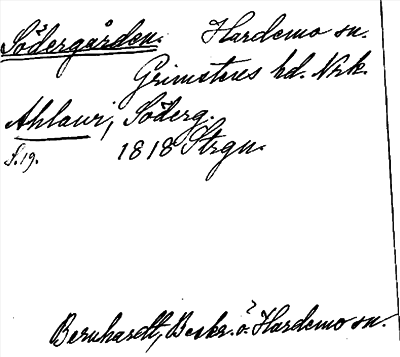 Södergården. Hardemo sn.
Grimstens hd. Nrk.
Ahlavi, Söderg.
S. 19. 1818 Strgn.
Bernhardt, Beskr. ö. Hardemo sn.